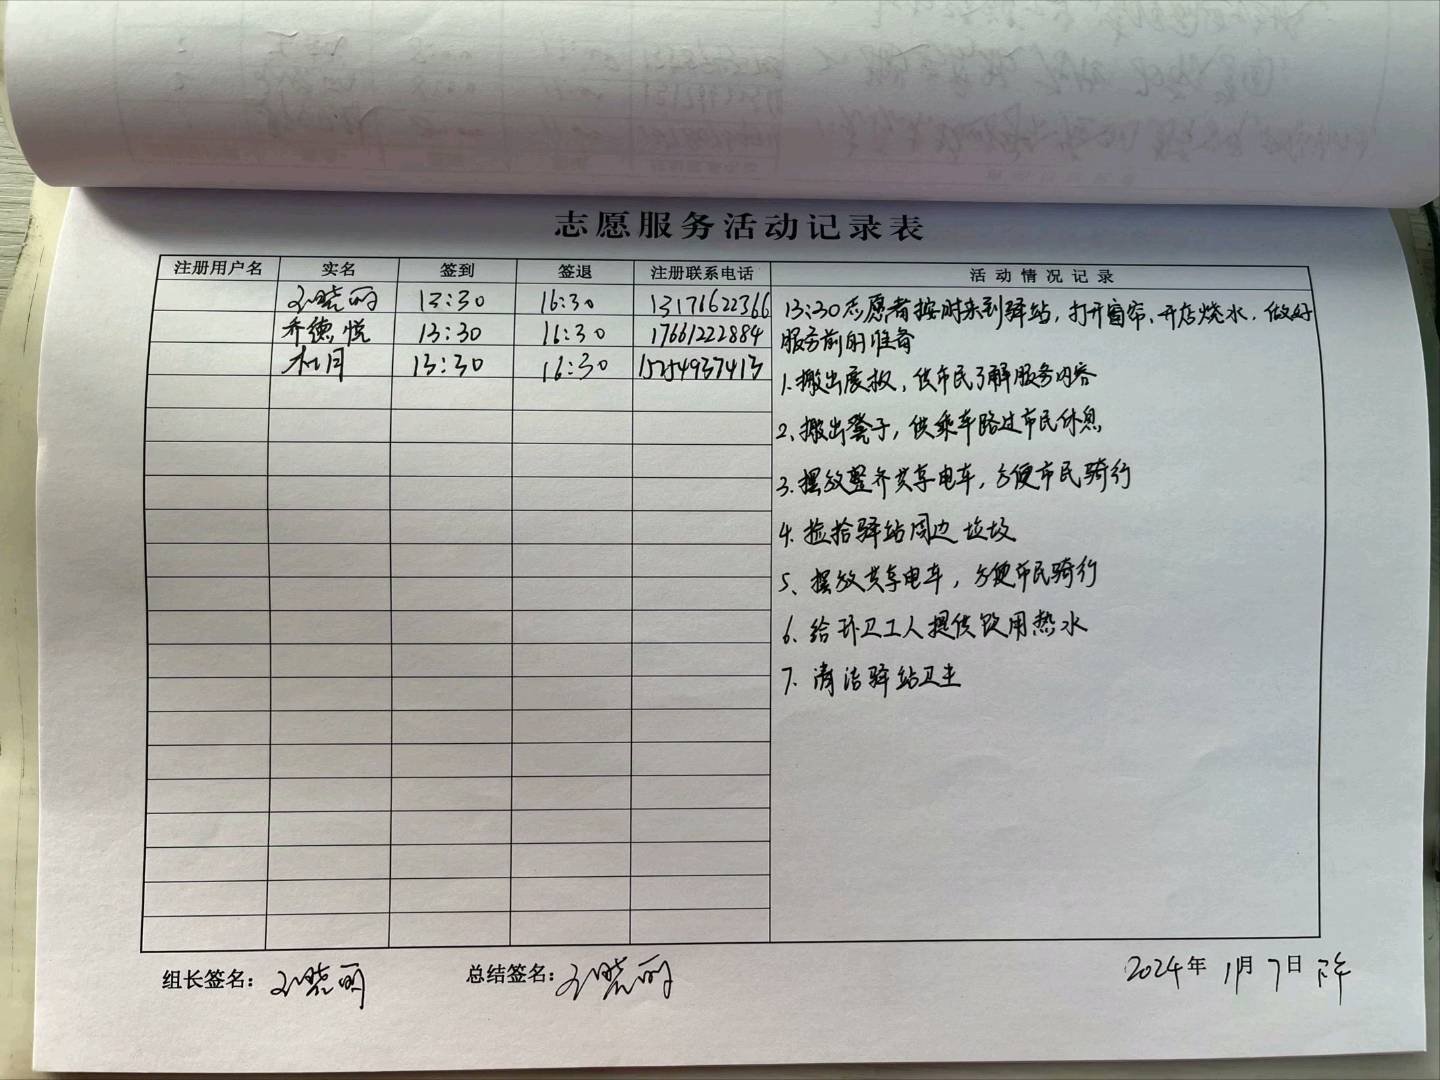 志愿服务活动记录表
注册用户名 实名 签到 签退 注册联系电话 活动情况记录
晓丽 13:30 16:30 13171622366
乔德悦 13:30 16:30 17661222884
杜月 13:30 16:30 15254937413
13:30志愿者按时来到驿站，打开窗帘、开店烧水，做好
服务前的准备
1.搬出展板，供市民了解服务内容
2、搬出凳子，供乘车路过市民休息
3.摆放整齐共享电车，方便市民骑行
4.捡拾驿站周边垃圾
5、摆放共享电车，方便市民骑行
6.给环卫工人提供饮用热水
7.清洁驿站卫生
组长签名：晓丽 总结签名：晓丽 2024年1月7日下午